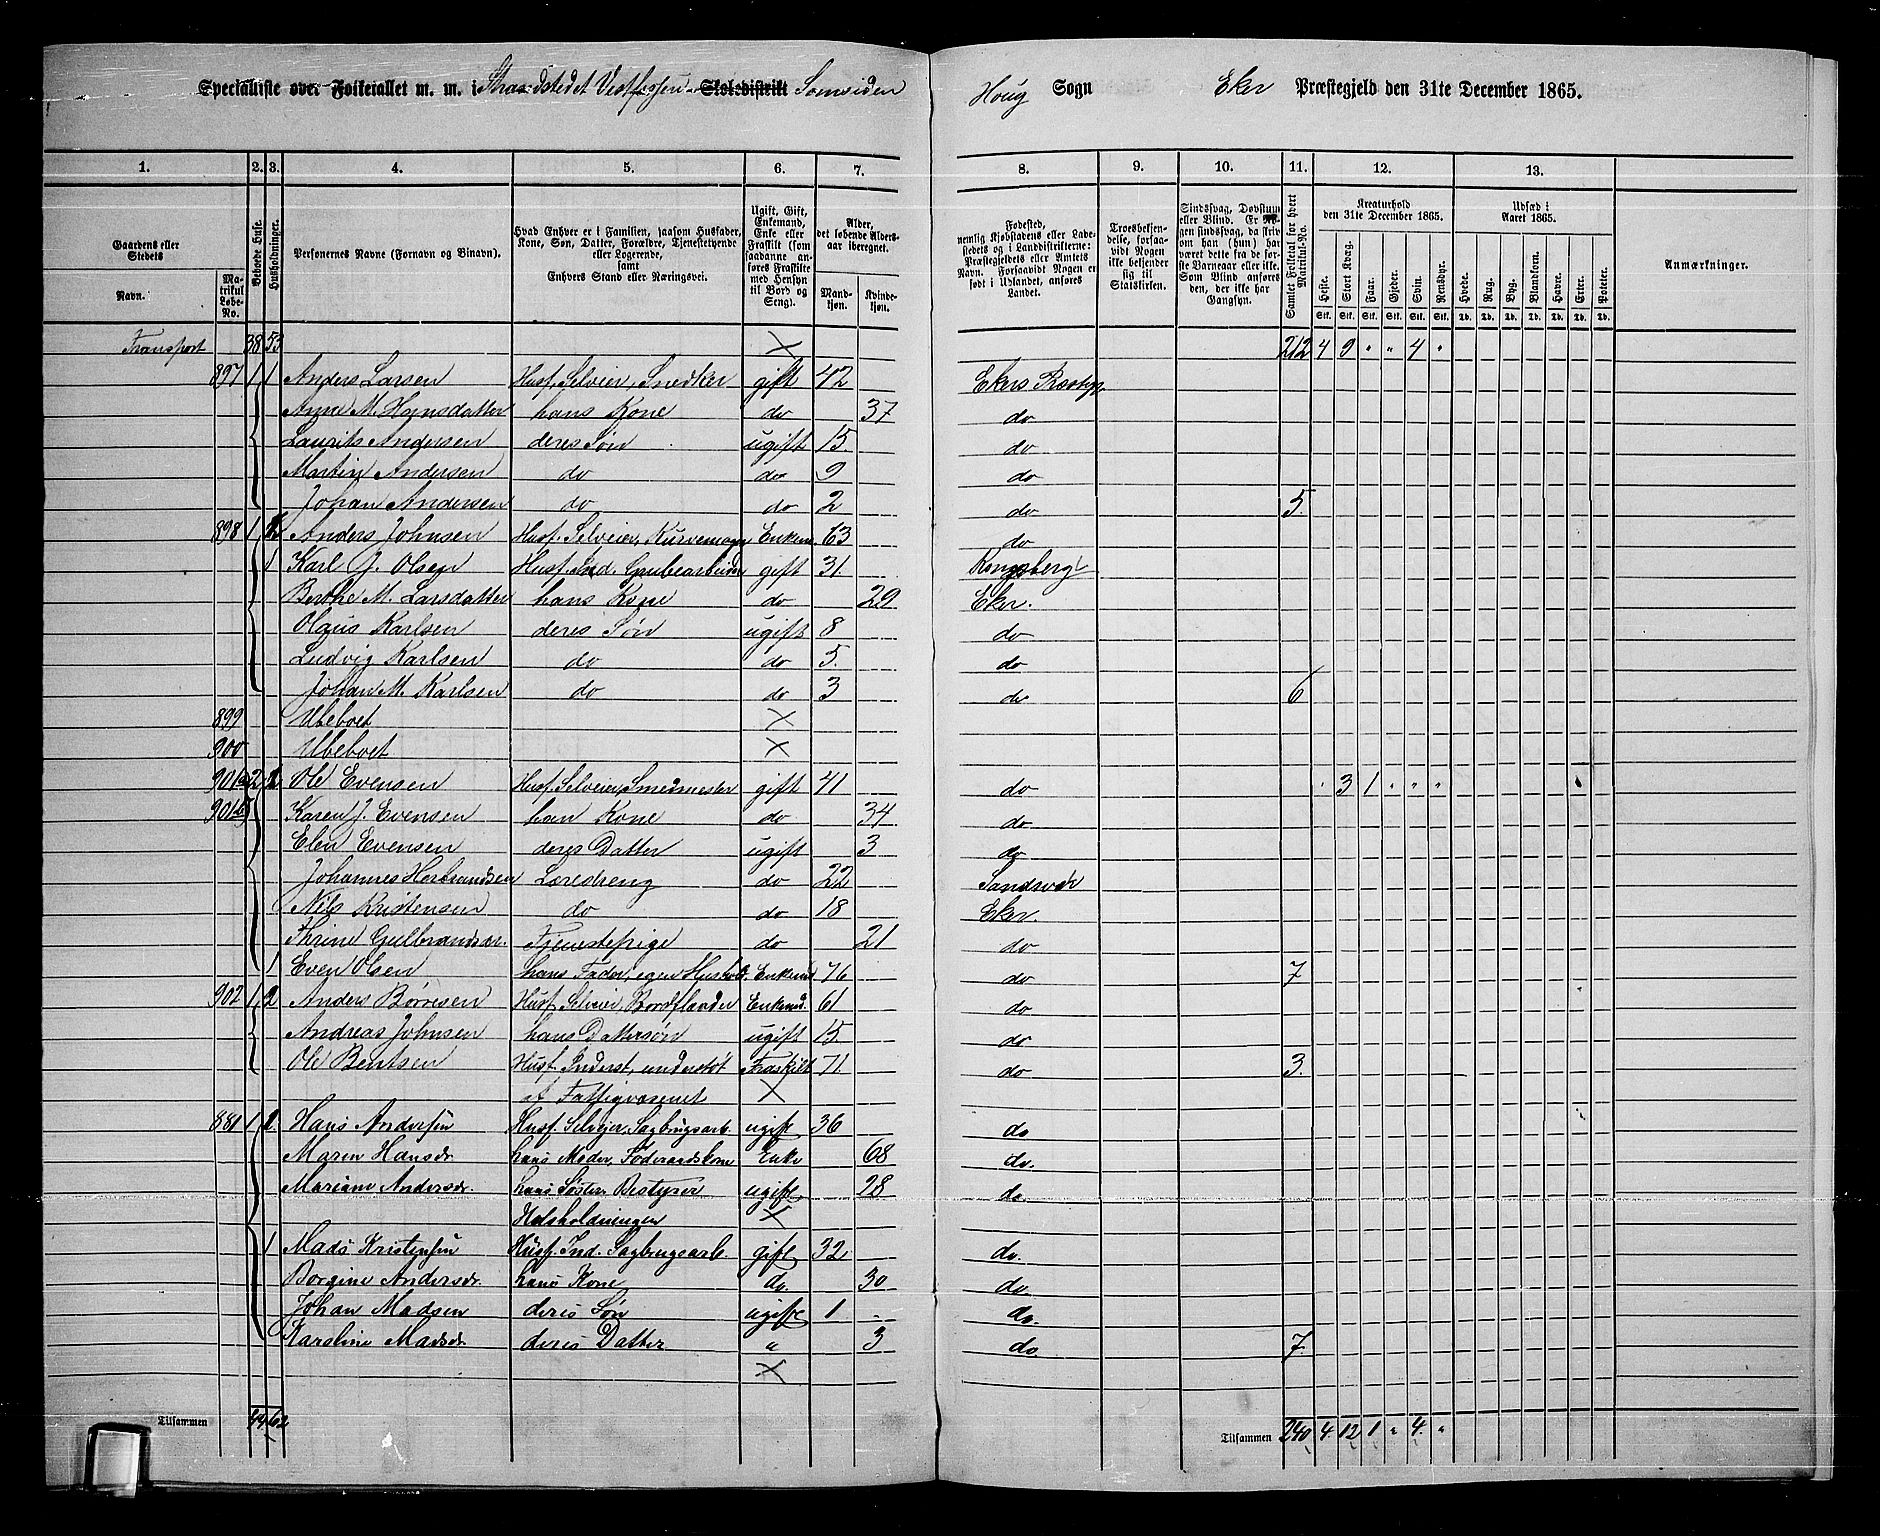 Specialliste over Folketallet m. m. i Strandstedet Vestfossen Skoledistrikt Somsiden Houg Sogn Eker Præstegjeld den 31te December 1865.
1. 2. 3. 4. 5. 6. 7. 8. 9. 10. 11. 12. 13.
Gaardens eller Stedets Navn. Matrikul Løbe-No. Beboede Huse. Husholdninger. Personernes Navne (Fornavn og Binavn). Hvad Enhver er i Familien, saasom Husfader, Kone, Søn, Datter, Forældre, Tjenestetyende eller Logerende, samt Enhvers Stand eller Næringsvei. Ugift, Gift, Enkemand, Enke eller Fraskilt (som saadanne anføres Fraskilte med Hensyn til Bord og Seng). Alder, det løbende Alders-aar iberegnet. Mandkjøn. Kvindekjøn. Fødested, nemlig Kjøbstadens eller Ladestedets og i Landdistrikterne: Præstegjeldets eller Amtets Navn. Forsaavidt Nogen er født i Udlandet, anføres Landet. Troesbekjendelse, forsaavidt Nogen ikke bekjender sig til Statskirken. Sindssvag, Døvstum eller Blind. Samlet Folketal for hvert Matrikul-No. Kreaturhold den 31te December 1865. Heste. Stort Kvæg. Faar. Gjeder. Svin. Rensdyr. Udsæd i Aaret 1865. Hvede. Rug. Byg. Blandkorn. Havre. Erter. Poteter. Anmærkninger.
Transport 38 53 × 212 4 9 " " 4 "
897 1 1 Anders Larsen Husf. Selveier, Snedker gift 42 Ekers Præstgj.
Anne M. Hansdatter hans Kone do 37 do
Laurits Andersen deres Søn ugift 15. do
Martin Andersen do do 9 do
Johan Andersen do do 2 do 5.
898 1 Anders Johnsen Husf. Selveier, Kurvemager Enkem. 63 do
1 Karl J. Olsen Husf. Ind. Grubearbeider gift 31. Kongsberg
Berthe M. Larsdatter hans Kone do 29 Eker.
Olaus Karlsen deres Søn ugift 8 do
Ludvig Karlsen do do 5. do
Johan M. Karlsen do do 3 do 6
899 Ubeboet ×
900 Ubeboet ×
901a 2 Ole Evensen Husf. Selveier, Smedmester gift 41 do " 3 1 " " "
901b Karen J. Evensen han Kone do 34 do
Elen Evensen deres Datter ugift 3 do
Johannes Herbrandsen Læredreng do 22 Sandsvær
Nils Kristensen do do 18 Eker.
Thrine Gulbrandsdr. Tjenestepige do 21 do
1 Even Olsen hans Fader, egen Hushold. Enkemd 76 do 7
902 1 2 Anders Børresen Husf. Selveier, Bordflander Enkemd. 61 do
Andreas Johnsen hans Dattersøn ugift 15. do
Ole Bentsen Husf. Inderst, understøt Fraskilt 71. do 3.
af Fattigvæsenet ×
881 1 Hans Andersen Husf. Selveier, Sagbrugsarb. ugift 36 do
Maren Hansdr. hans Moder, Føderaadskone Enke 68 do.
Mariane Andersdr. hans Søster, Bestyrer ugift 28 do
Husholdningen ×
1 Mads Kristensen Husf. Ind. Sagbrugsarb. gift 32 do.
Borgine Andersdr. hans Kone do. 30 do
Johan Madsen deres Søn ugift 1 do.
Karoline Madsdr. deres Datter " 3 do 7.
×
Tilsammen 44 62 Tilsammen 240 4. 12 1 " 4. "